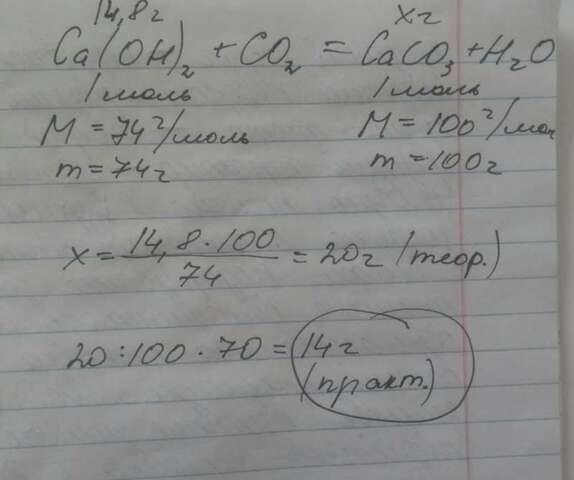 14,8г xг
Ca(OH)₂ + CO₂ = CaCO₃ + H₂O
1 моль 1 моль
M = 74 г/моль M = 100 г/мол
m = 74г m = 100г
x = 14,8 · 100 / 74 = 20г (теор.)
20 : 100 · 70 = 14г
(практ.)